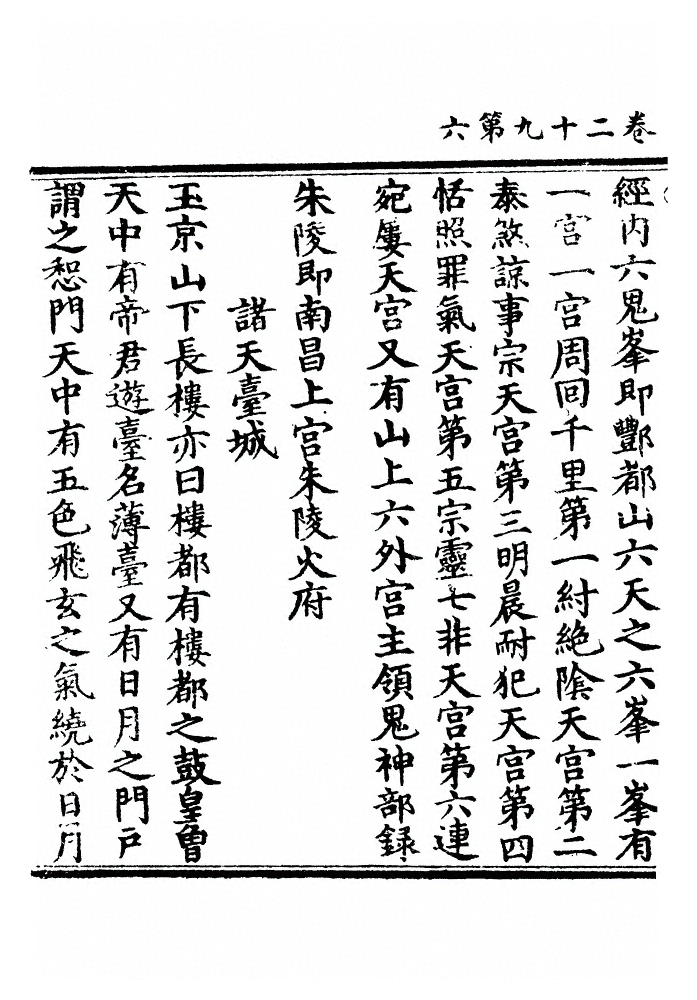 卷二十九第六
經內六鬼峯即酆都山六天之六峯一峯有
一宮一宮周回千里第一紂絶陰天宮第二
泰煞諒事宗天宮第三明晨耐犯天宮第四
恬照罪氣天宮第五宗靈七非天宮第六連
宛屢天宮又有山上六外宮主領鬼神部録
朱陵即南昌上宮朱陵火府
諸天臺城
玉京山下長樓亦曰樓都有樓都之鼓皇曾
天中有帝君遊臺名薄臺又有日月之門戶
謂之恕門天中有五色飛玄之氣繞於日月